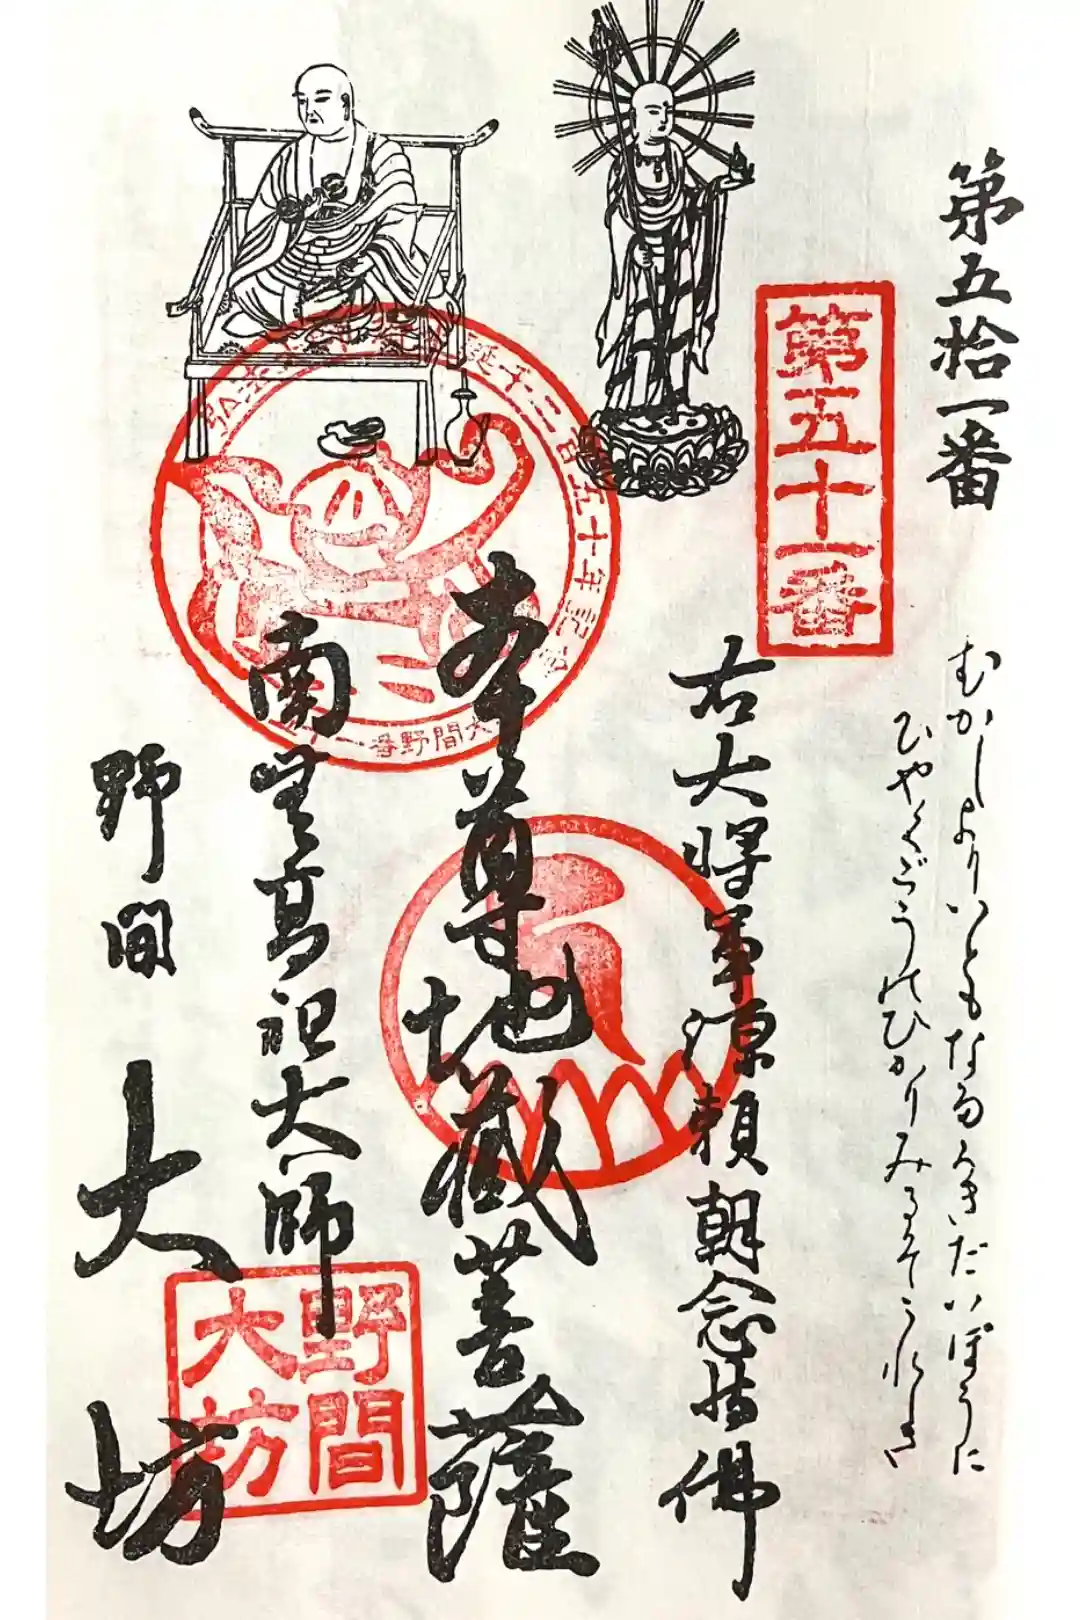 第五拾一番
第五十一番
むかしよりいともなたかきだいぼうに
ひやくごうのひかりみるぞうれしき
右大将軍源頼朝念持佛
本尊地蔵菩薩
南無高祖大師
野間大坊
誕千二百五十年記念
一番野間大
野間
大坊